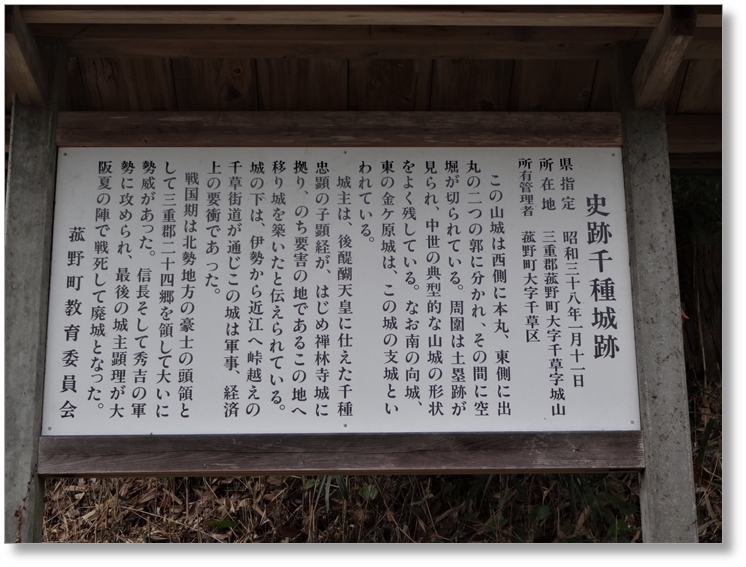 史跡千種城跡
県指定　昭和三十八年一月十一日
所在地　三重郡菰野町大字千草字城山
所有管理者　菰野町大字千草区
この山城は西側に本丸、東側に出
丸の二つの郭に分かれ、その間に空
堀が切られている。周囲は土塁跡が
見られ、中世の典型的な山城の形状
をよく残している。なお南の向城、
東の金ケ原城は、この城の支城とい
われている。
城主は、後醍醐天皇に仕えた千種
忠顕の子顕経が、はじめ禅林寺城に
拠り、のち要害の地であるこの地へ
移り城を築いたと伝えられている。
城の下は、伊勢から近江へ峠越えの
千草街道が通じこの城は軍事、経済
上の要衝であった。
戦国期は北勢地方の豪士の頭領と
して三重郡二十四郷を領して大いに
勢威があった。信長そして秀吉の軍
勢に攻められ、最後の城主顕理が大
阪夏の陣で戦死して廃城となった。
菰野町教育委員会